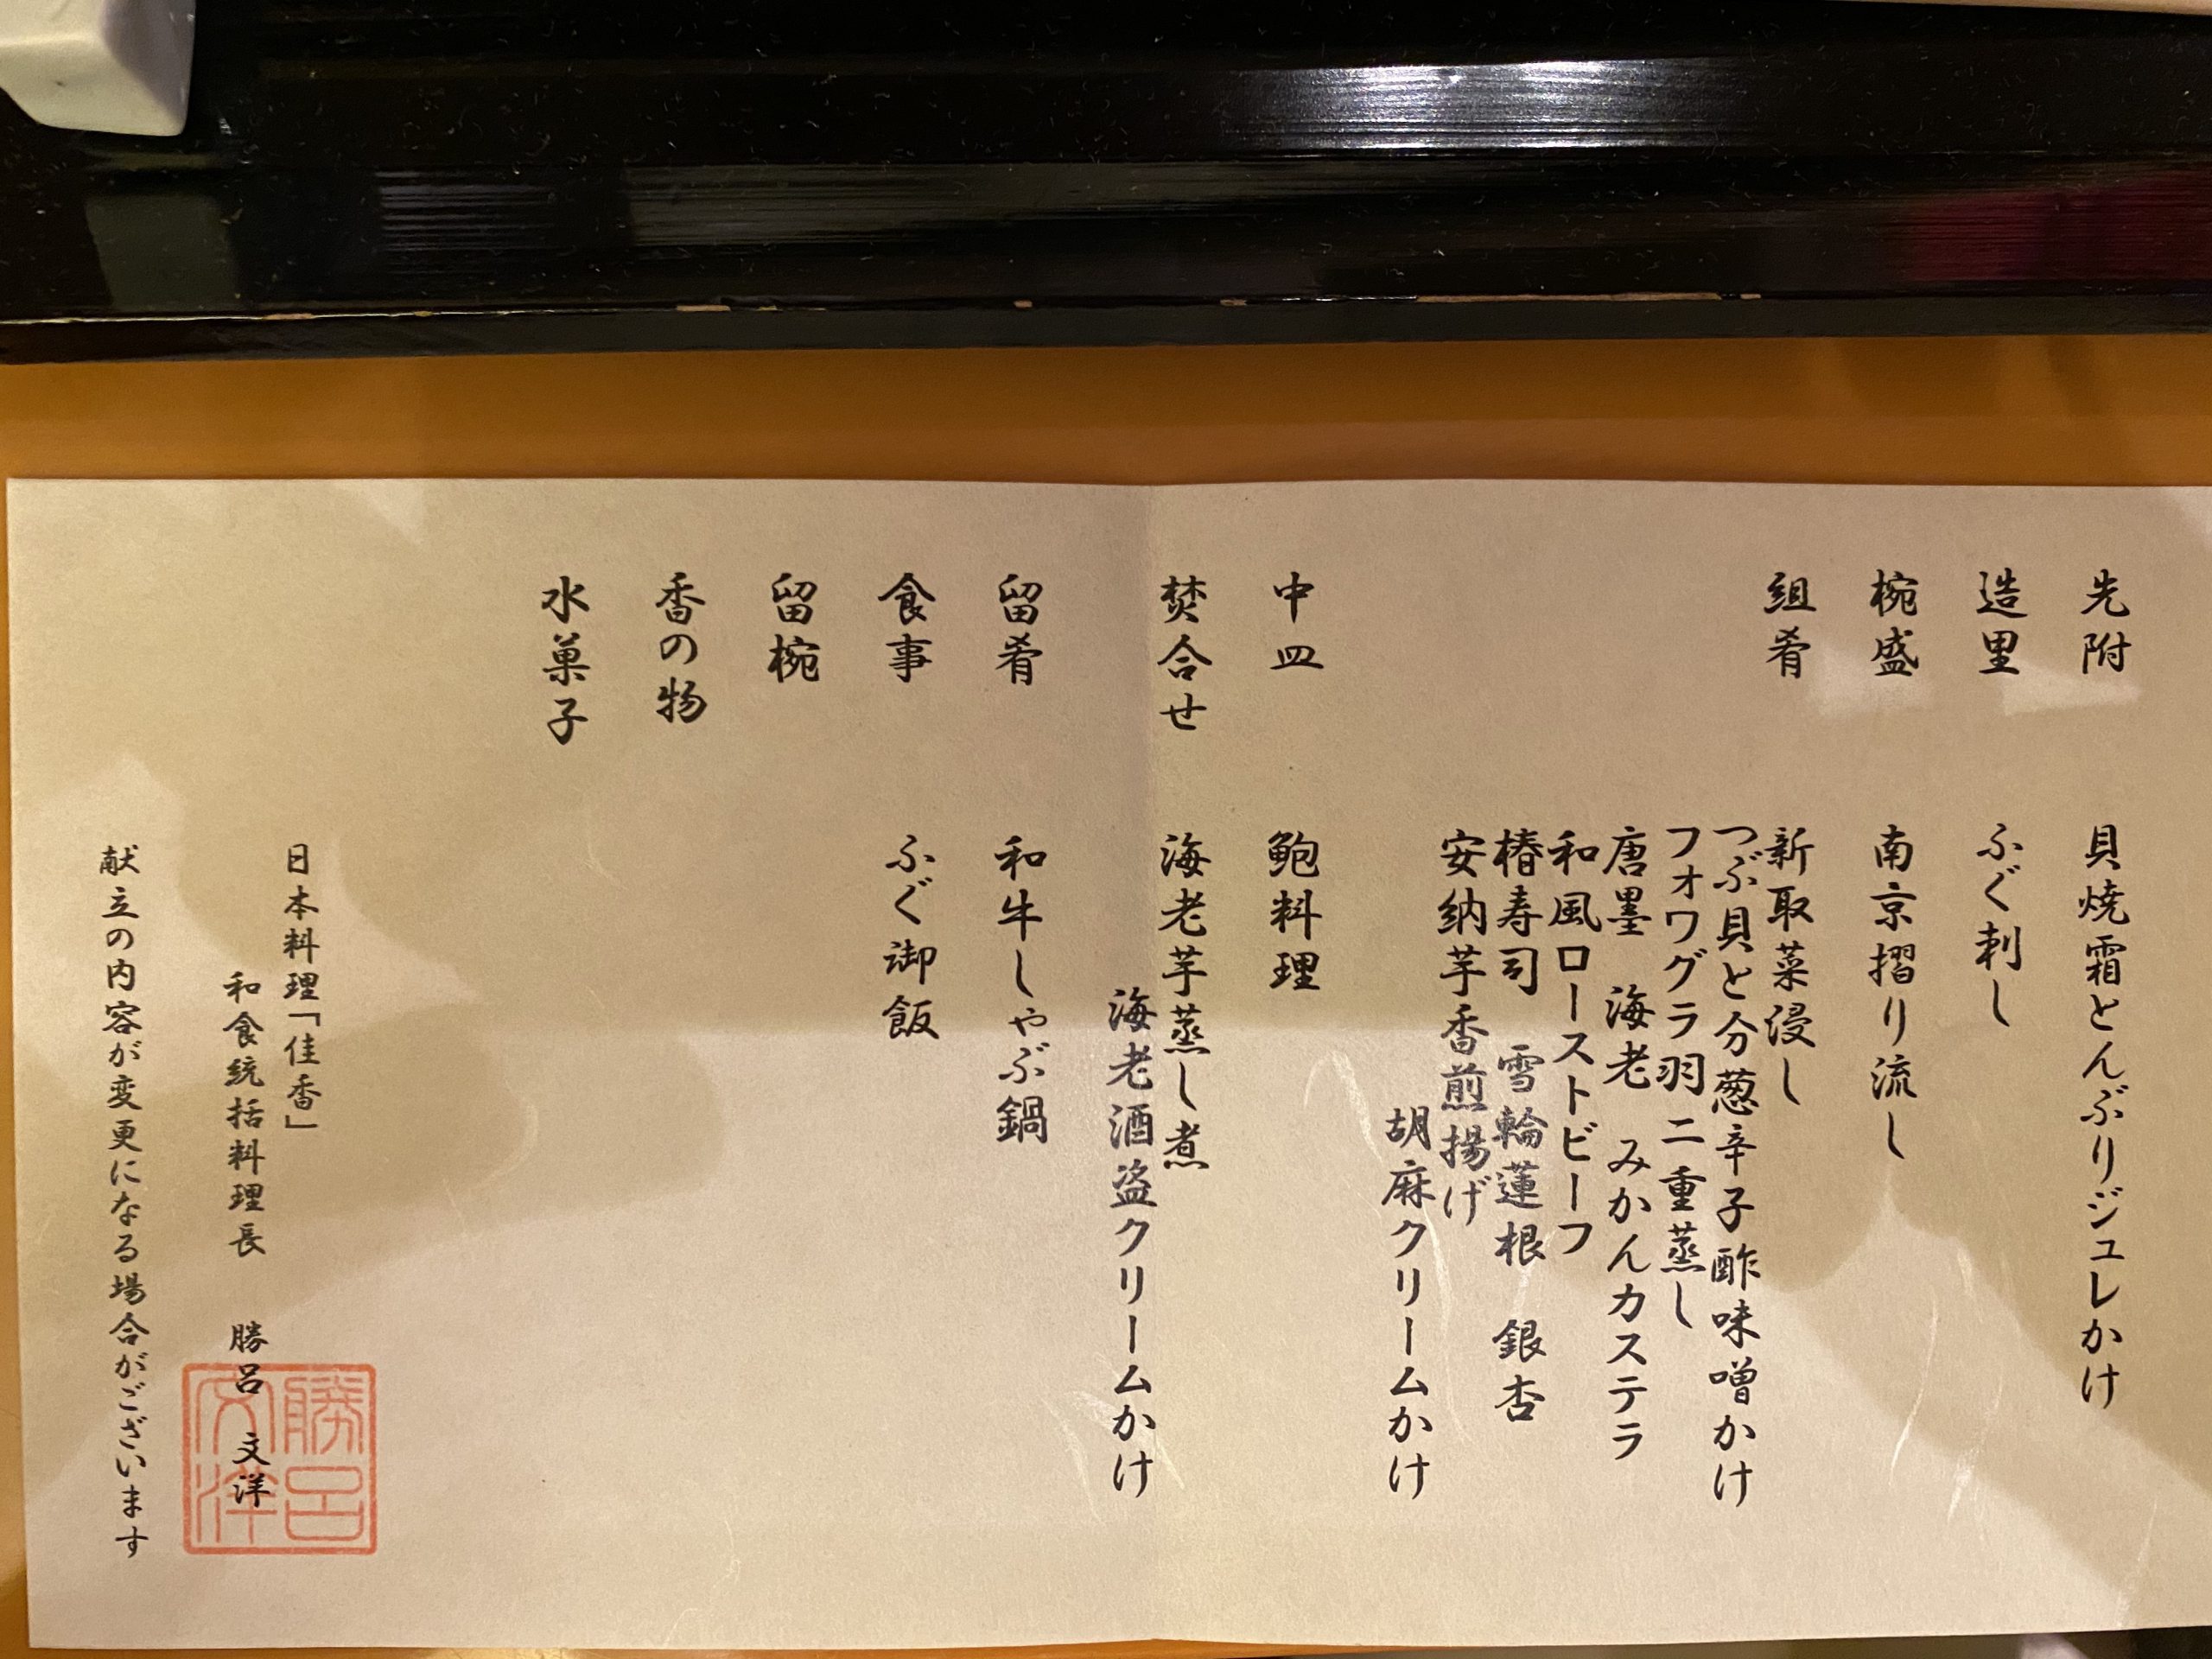 先附　貝焼霜とんぶりジュレかけ
造里　ふぐ刺し
椀盛　南京摺り流し
組肴　新取菜浸し
つぶ貝と分葱辛子酢味噌かけ
フォワグラ羽二重蒸し
唐墨　海老　みかんカステラ
和風ローストビーフ
椿寿司　雪輪蓮根　銀杏
安納芋香煎揚げ
胡麻クリームかけ
中皿　鮑料理
焚合せ　海老芋蒸し煮
海老酒盗クリームかけ
留肴　和牛しゃぶ鍋
食事　ふぐ御飯
留椀
香の物
水菓子
日本料理「佳香」
和食統括料理長　勝呂　文洋
勝呂
文洋
献立の内容が変更になる場合がございます